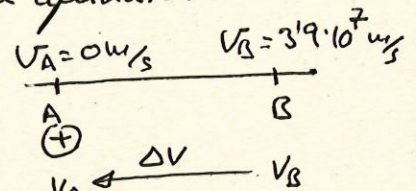 V_A = 0 m/s    V_B = 3'9·10^7 m/s
A    B
+
ΔV
V_B